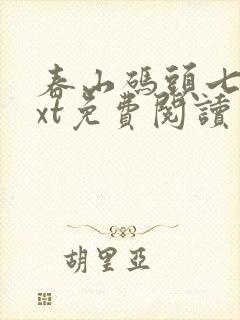 春山碼頭七
xt免費閱讀
胡里亞